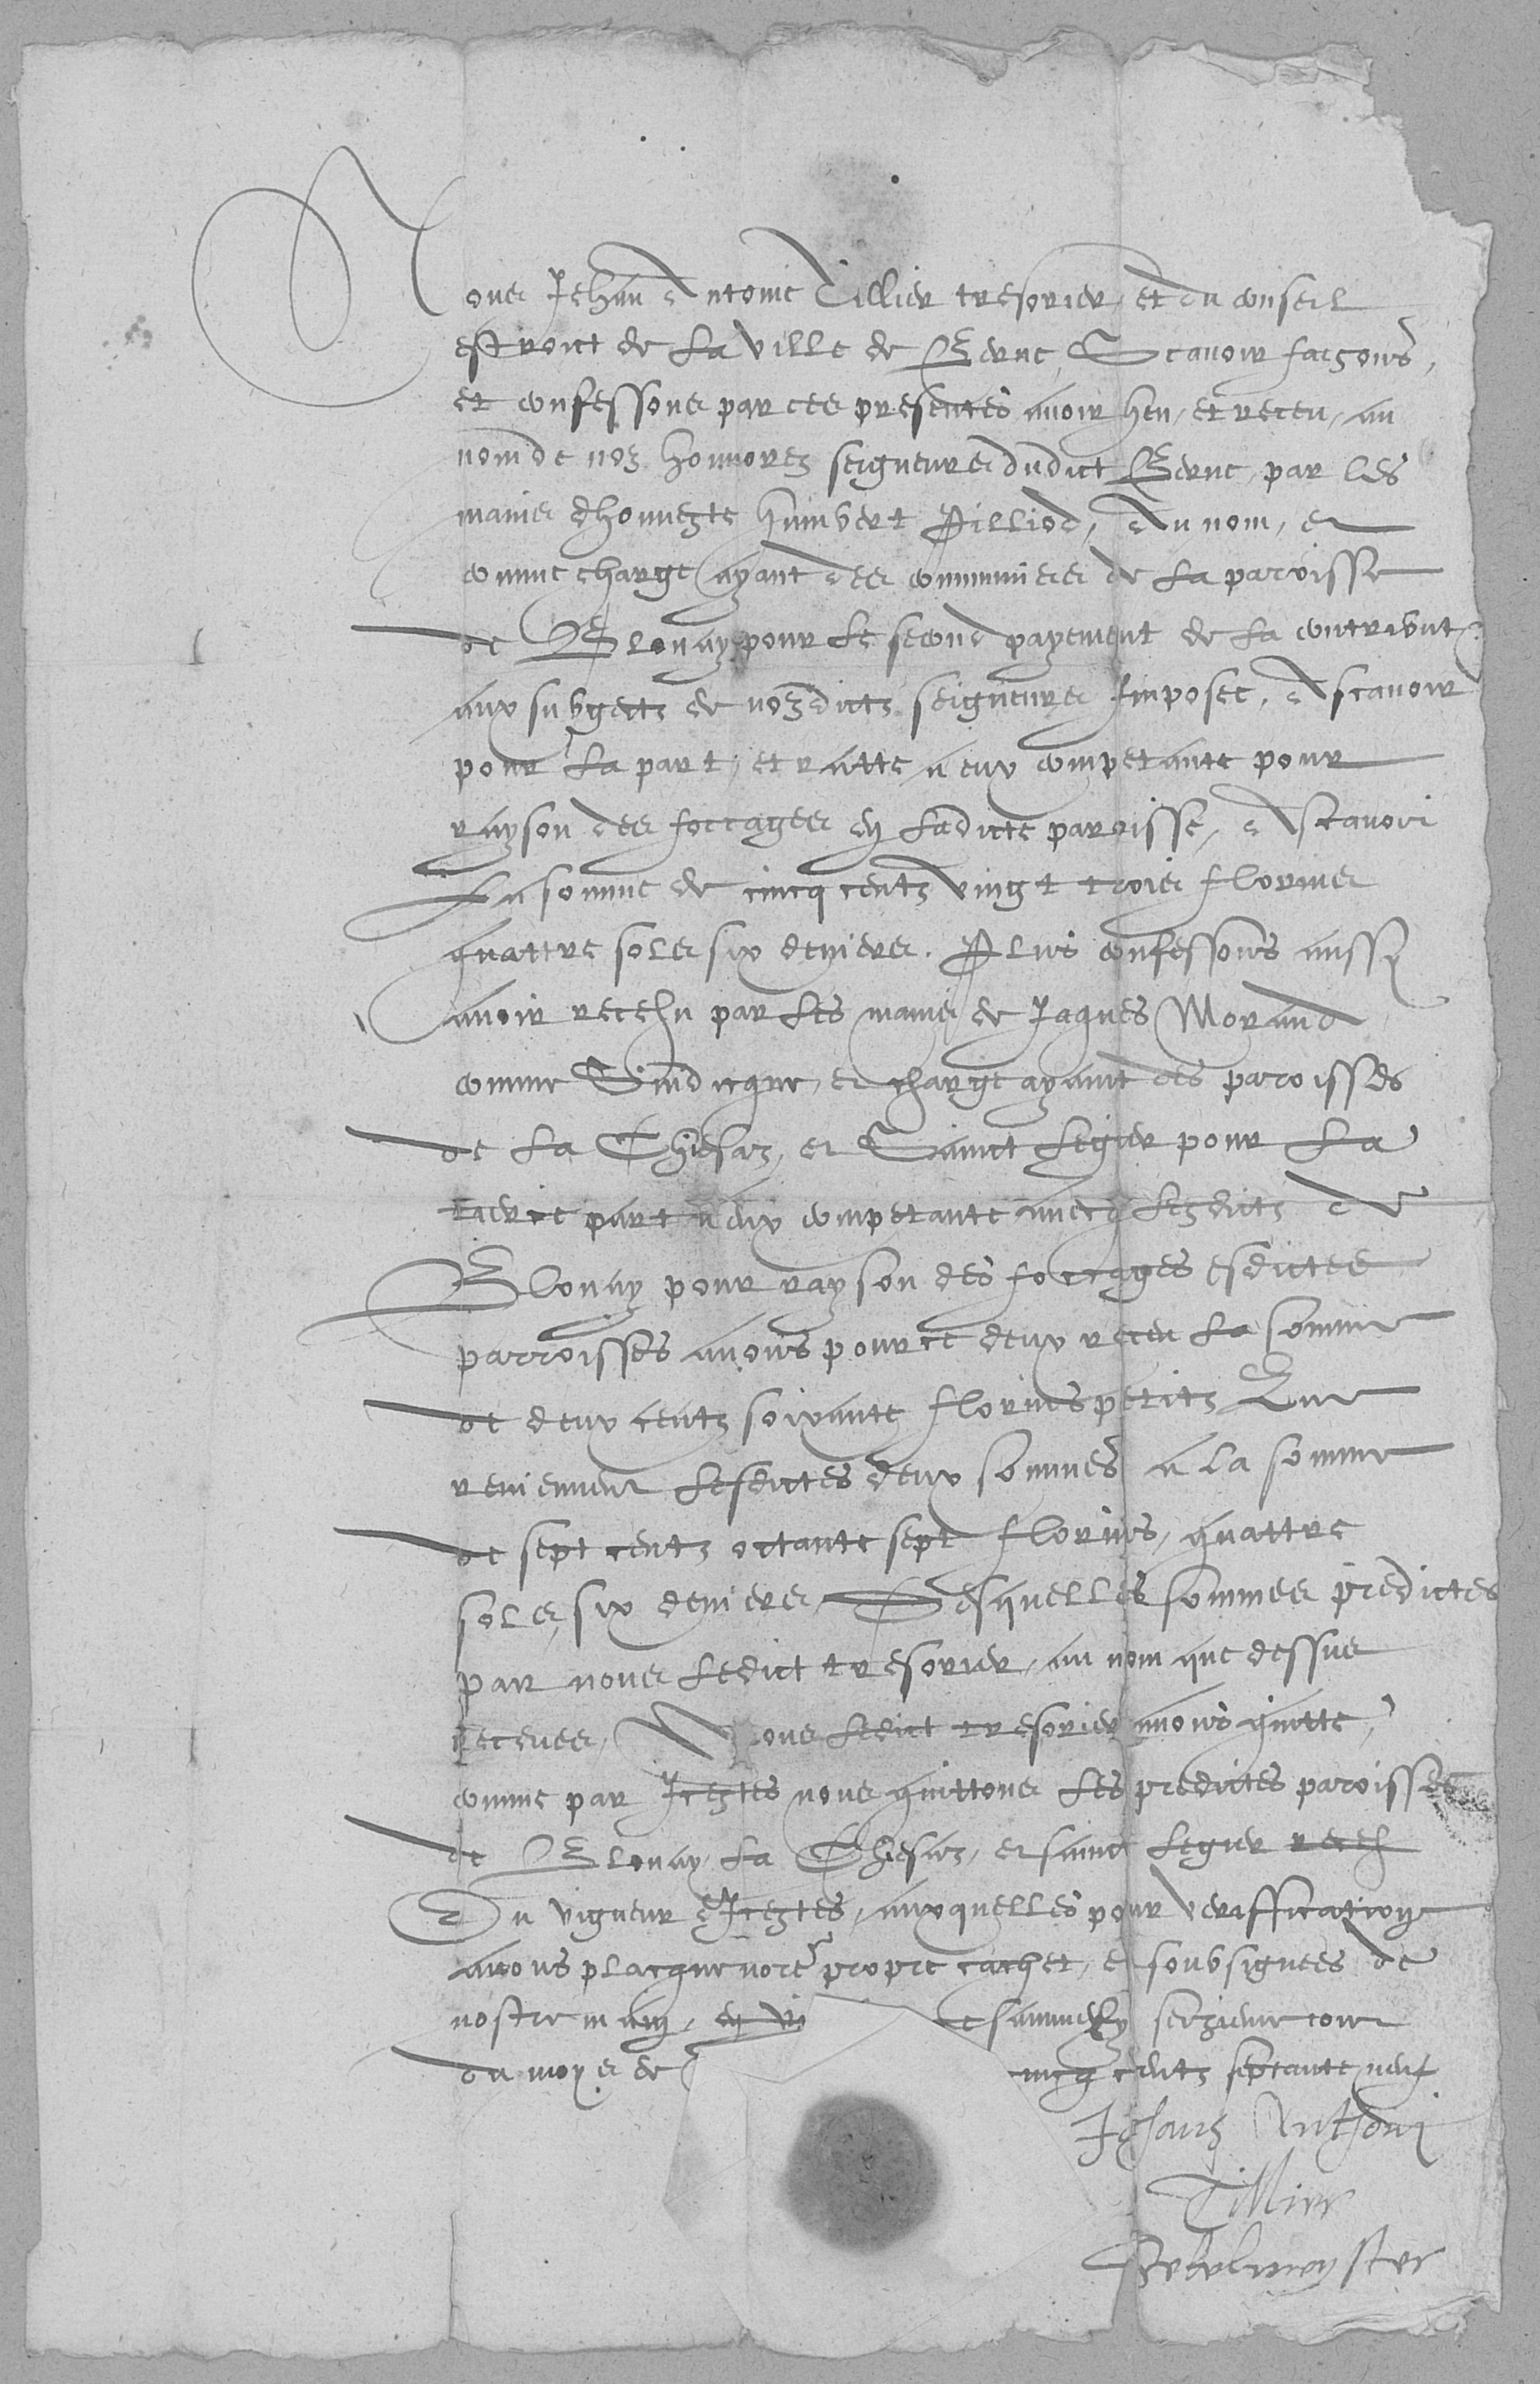 Nous Jehan Anthoine Tillier tresorier, et du conseil
estroict de la ville de Berne, Scavoir faisons,
et confessons par ces presentes avoir heu, et receu, au
nom de noz honnorez seigneurs dudict Berne, par les
mains d'honneste Humbert Pilliod, Au nom, et
comme charge ayant des communiers de la paroisse
de Blonay pour le second payement de la contribut
aux subgectz de nozdictz seigneurs Imposee, Ascavoir
pour la part, et ratte a eux competante pour
rayson des foccages en ladicte paroisse, Ascavoir
La somme de cincq centz vingt trois florins
quattre sols six deniers. Plus confessons aussy
avoir recehu par les mains de Jaques Morand
comme Sindicque, et charge ayant des paroisses
de La Chiesaz, et Sainct Legier pour La
tierce part a eux competante avecq lesdictz de
Blonay pour rayson des foccages esdictes
parroisses avons pour ce deux receu La somme
de deux centz soixante florins petitz Que
reviennent lesdictes deux sommes a la somme
de sept centz octante sept florins, quattre
sols, six deniers, Desquelles sommes predictes
par nous ledict tresorier, au nom que dessus
receues, Nous ledict tresorier avons quitte,
comme par Iceztes nous quittons les predictes paroisses
de Blonay, La Chiesaz, et sainct Legier
En vigueur d'Iceztes, auxquelles pour veriffication
avons placque nore propre cachet, et soubsignees de
nostre main, en
du moys de cincq centz septante neuf
Jehans Anthoni
Tillier
Seckelmeyster